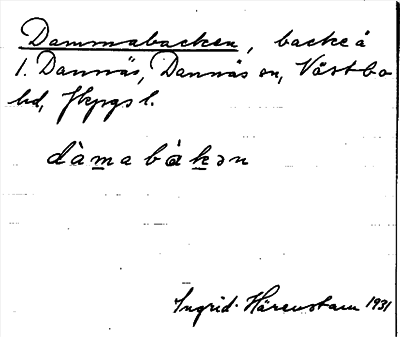 Dammabacken, backe å
1. Dannäs, Dannäs sn, Västbo
hd, Jkpgs l.
dàmabákən
Ingrid Härenstam 1931